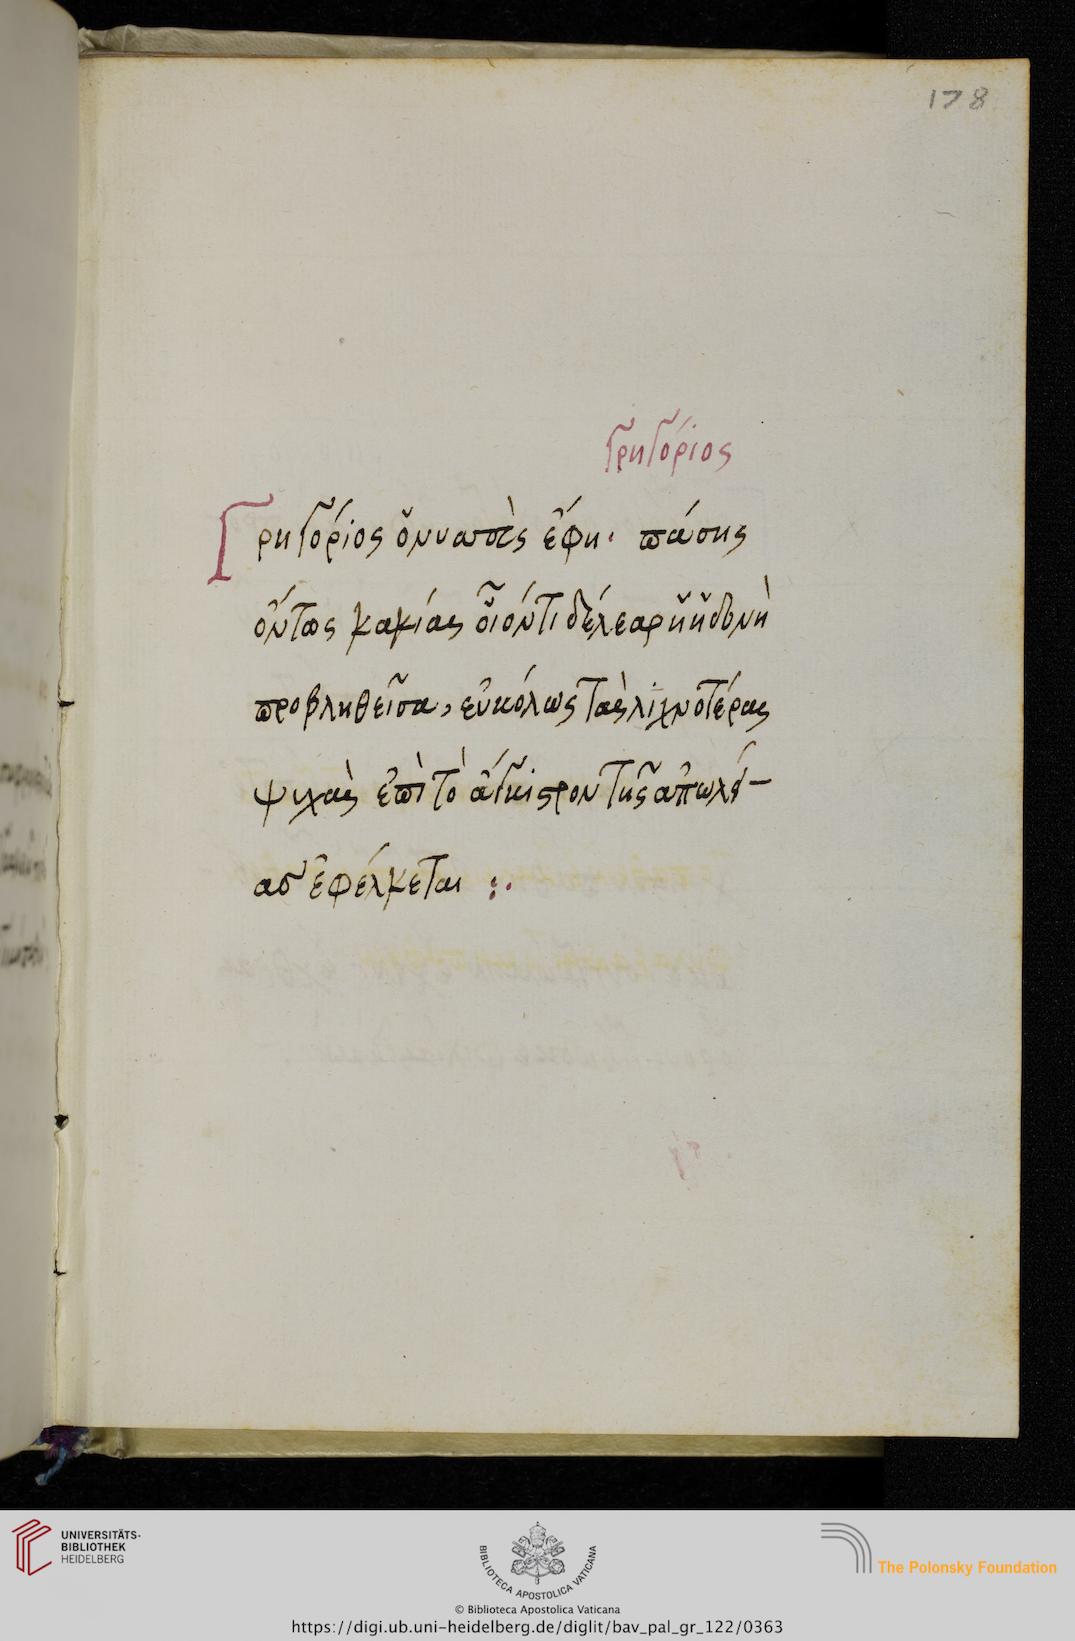 178
Γρηγόριος
Γρηγόριος ὁ νυασεὺς ἔφη· πάσης
ὄντως κακίας οἷόν τι δέλεαρ ἡ ἡδονὴ
προβληθεῖσα, εὐκόλως τὰς λιχνοτέρας
ψυχὰς ἐπὶ τὸ ἄγκιστρον τῆς ἀπωλεί-
ας ἐφέλκεται :.
UNIVERSITÄTS-
BIBLIOTHEK
HEIDELBERG
BIBLIOTECA APOSTOLICA VATICANA
The Polonsky Foundation
© Biblioteca Apostolica Vaticana
https://digi.ub.uni-heidelberg.de/diglit/bav_pal_gr_122/0363